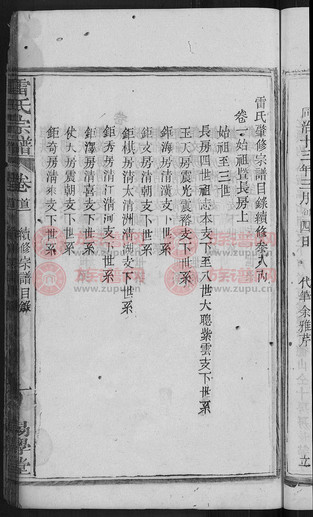 同治十三年三月 四日
代華余雅芹
立
雷氏肇修宗譜目錄續修叁入内
卷一始祖暨長房上
始祖至三世
長房四世祖志本支下至八世大聰紫雲支下世系
王大房震光震裕支下世系
鉅海房清漢支下世系
鉅文房清朝支下世系
鉅棋房清太清洲清
鉅秀房清江清河支下世系
鉅澤房清喜支下世系
仗大房震朝支下世系
鉅奇房清乘支下世系
雷氏宗譜
卷首
續修宗譜目錄
一
易學堂
族譜网
www.zupu.cn